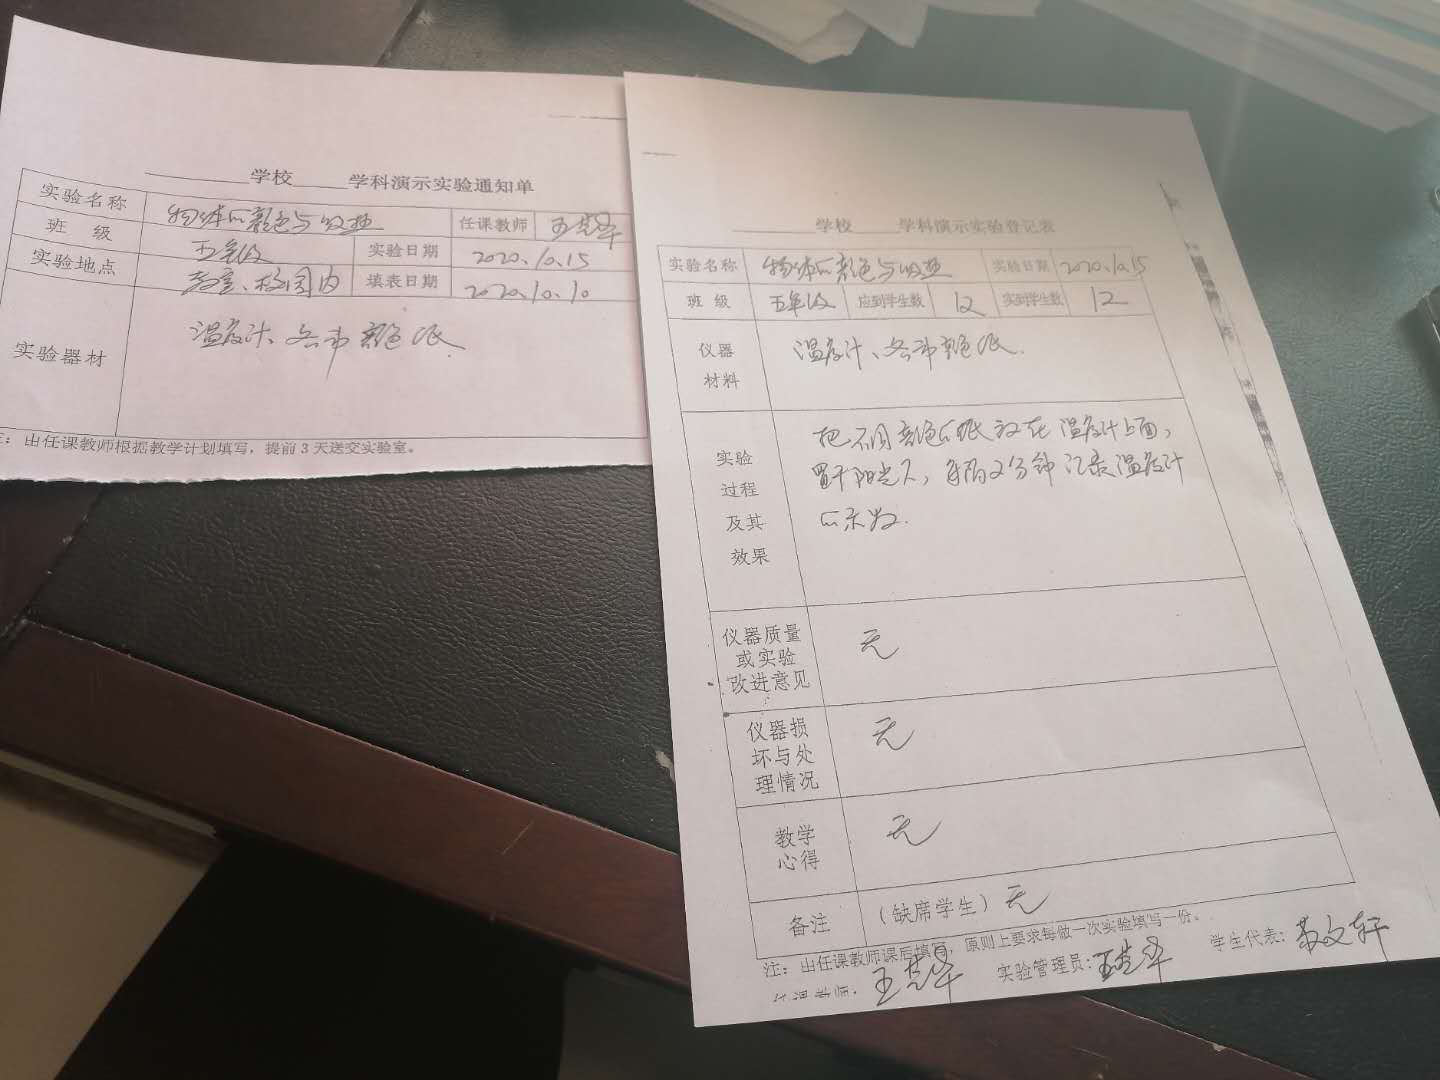 学校 学科演示实验通知单
实验名称 物体的颜色与吸热 任课教师
班 级 五年级 实验日期 2020.10.15
实验地点 教室、校园内 填表日期 2020.10.10
实验器材 温度计、各种颜色纸
注：由任课教师根据教学计划填写，提前3天送交实验室。
学校 学科演示实验登记表
实验名称 物体的颜色与吸热 实验日期 2020.10.15
班 级 五年级 应到学生数 12 实到学生数 12
仪器 温度计、各种颜色纸.
材料
实验 把不同颜色的纸放在温度计上面，
过程 置于阳光下，每隔2分钟记录温度计
及其 的示数.
效果
仪器质量
或实验 无
改进意见
仪器损
坏与处 无
理情况
教学 无
心得
备注 （缺席学生）无
注：由任课教师课后填写，原则上要求每做一次实验填写一份。
任课教师： 实验管理员： 学生代表：苏文轩